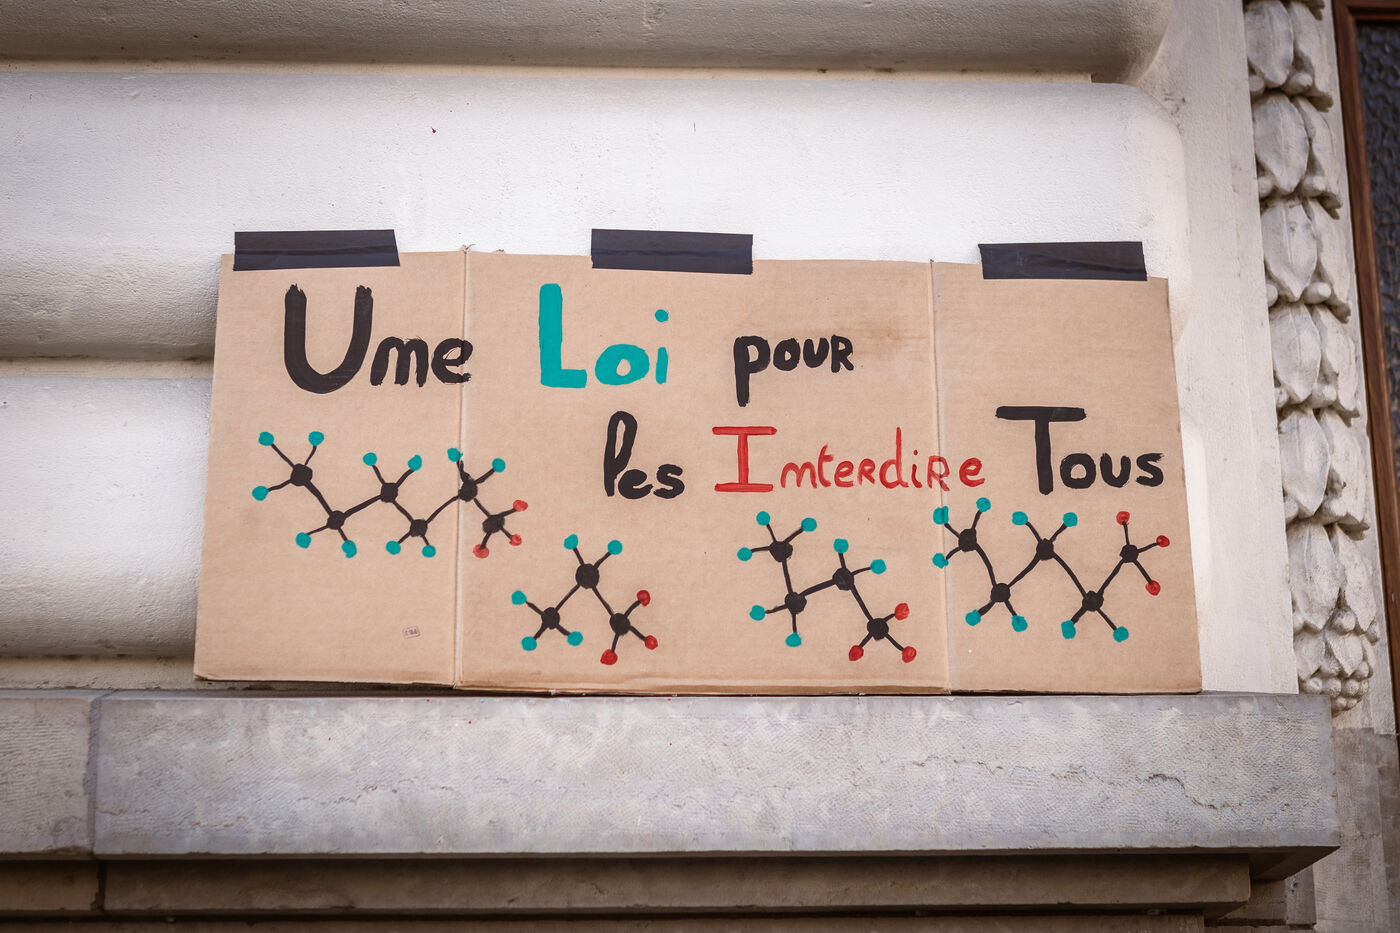 Ume Loi pour
les Imterdire Tous